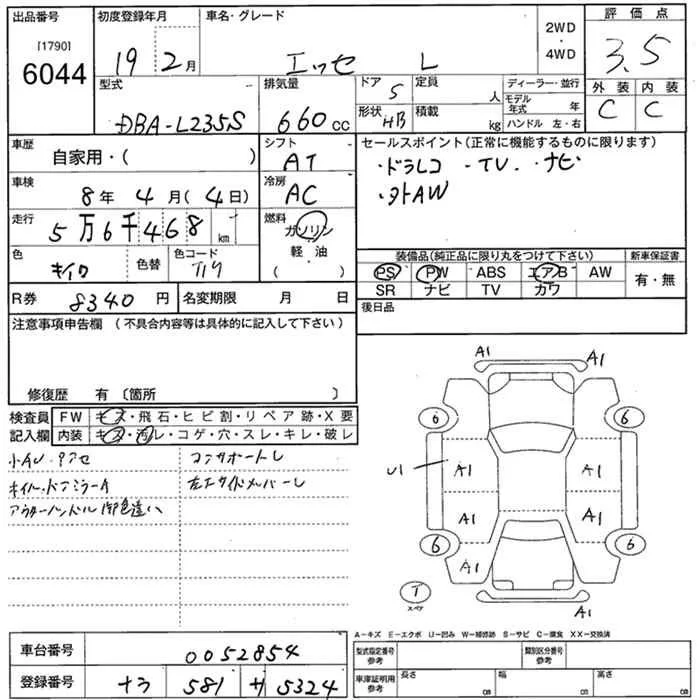 出品番号
[1790]
6044
初度登録年月
19 2月
車名・グレード
エッセ L
2WD
・
4WD
評価点
3.5
外装 内装
C C
型式
DBA-L235S
排気量
660cc
ドア 5
形状 HB
定員 人
積載 kg
ディーラー・並行
モデル年式 年
ハンドル 左・右
車歴
自家用・( )
シフト
AT
セールスポイント(正常に機能するものに限ります)
・ドラレコ ・TV. ・ナビ
・外AW
車検
8年 4月(4日)
冷房
AC
走行
5万6千468km
燃料
ガソリン
軽・油
( )
色
キイロ
色替
色コード
装備品(純正品に限り丸をつけて下さい)
PS PW ABS エアB AW
SR ナビ TV カワ
新車保証書
有・無
R券 8340円
名変期限 月 日
後日品
注意事項申告欄(不具合内容等は具体的に記入して下さい)
修復歴 有〔箇所 〕
検査員記入欄
FW キズ・飛石・ヒビ割・リペア跡・X要
内装 キズ・汚レ・コゲ・穴・スレ・キレ・破レ
小AU・
コアサポートレ
左
アウターハンドル 色違い
A1
A1
6
6
U1
A1
A1
A1
A1
6
6
A1
T
スペア
A1
A-キズ E-エクボ U-凹み W-補修跡 S-サビ C-腐食 XX-交換済
車台番号
0052854
登録番号
ナラ 581 サ 5324
型式指定番号
参考
類別区分番号
参考
車庫証明用
参考
長さ cm
幅 cm
高さ cm